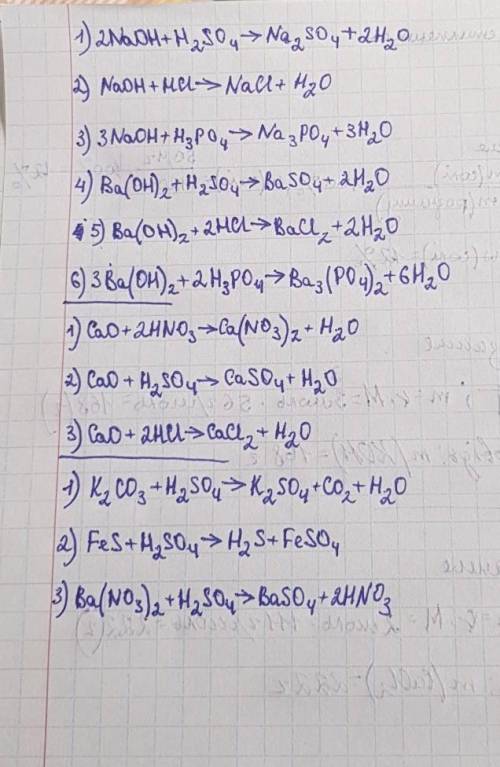 1) 2NaOH+H₂SO₄→Na₂SO₄+2H₂O
2) NaOH+HCl→NaCl+H₂O
3) 3NaOH+H₃PO₄→Na₃PO₄+3H₂O
4) Ba(OH)₂+H₂SO₄→BaSO₄+2H₂O
5) Ba(OH)₂+2HCl→BaCl₂+2H₂O
6) 3Ba(OH)₂+2H₃PO₄→Ba₃(PO₄)₂+6H₂O
1) CaO+2HNO₃→Ca(NO₃)₂+H₂O
2) CaO+H₂SO₄→CaSO₄+H₂O
3) CaO+2HCl→CaCl₂+H₂O
1) K₂CO₃+H₂SO₄→K₂SO₄+CO₂+H₂O
2) FeS+H₂SO₄→H₂S+FeSO₄
3) Ba(NO₃)₂+H₂SO₄→BaSO₄+2HNO₃